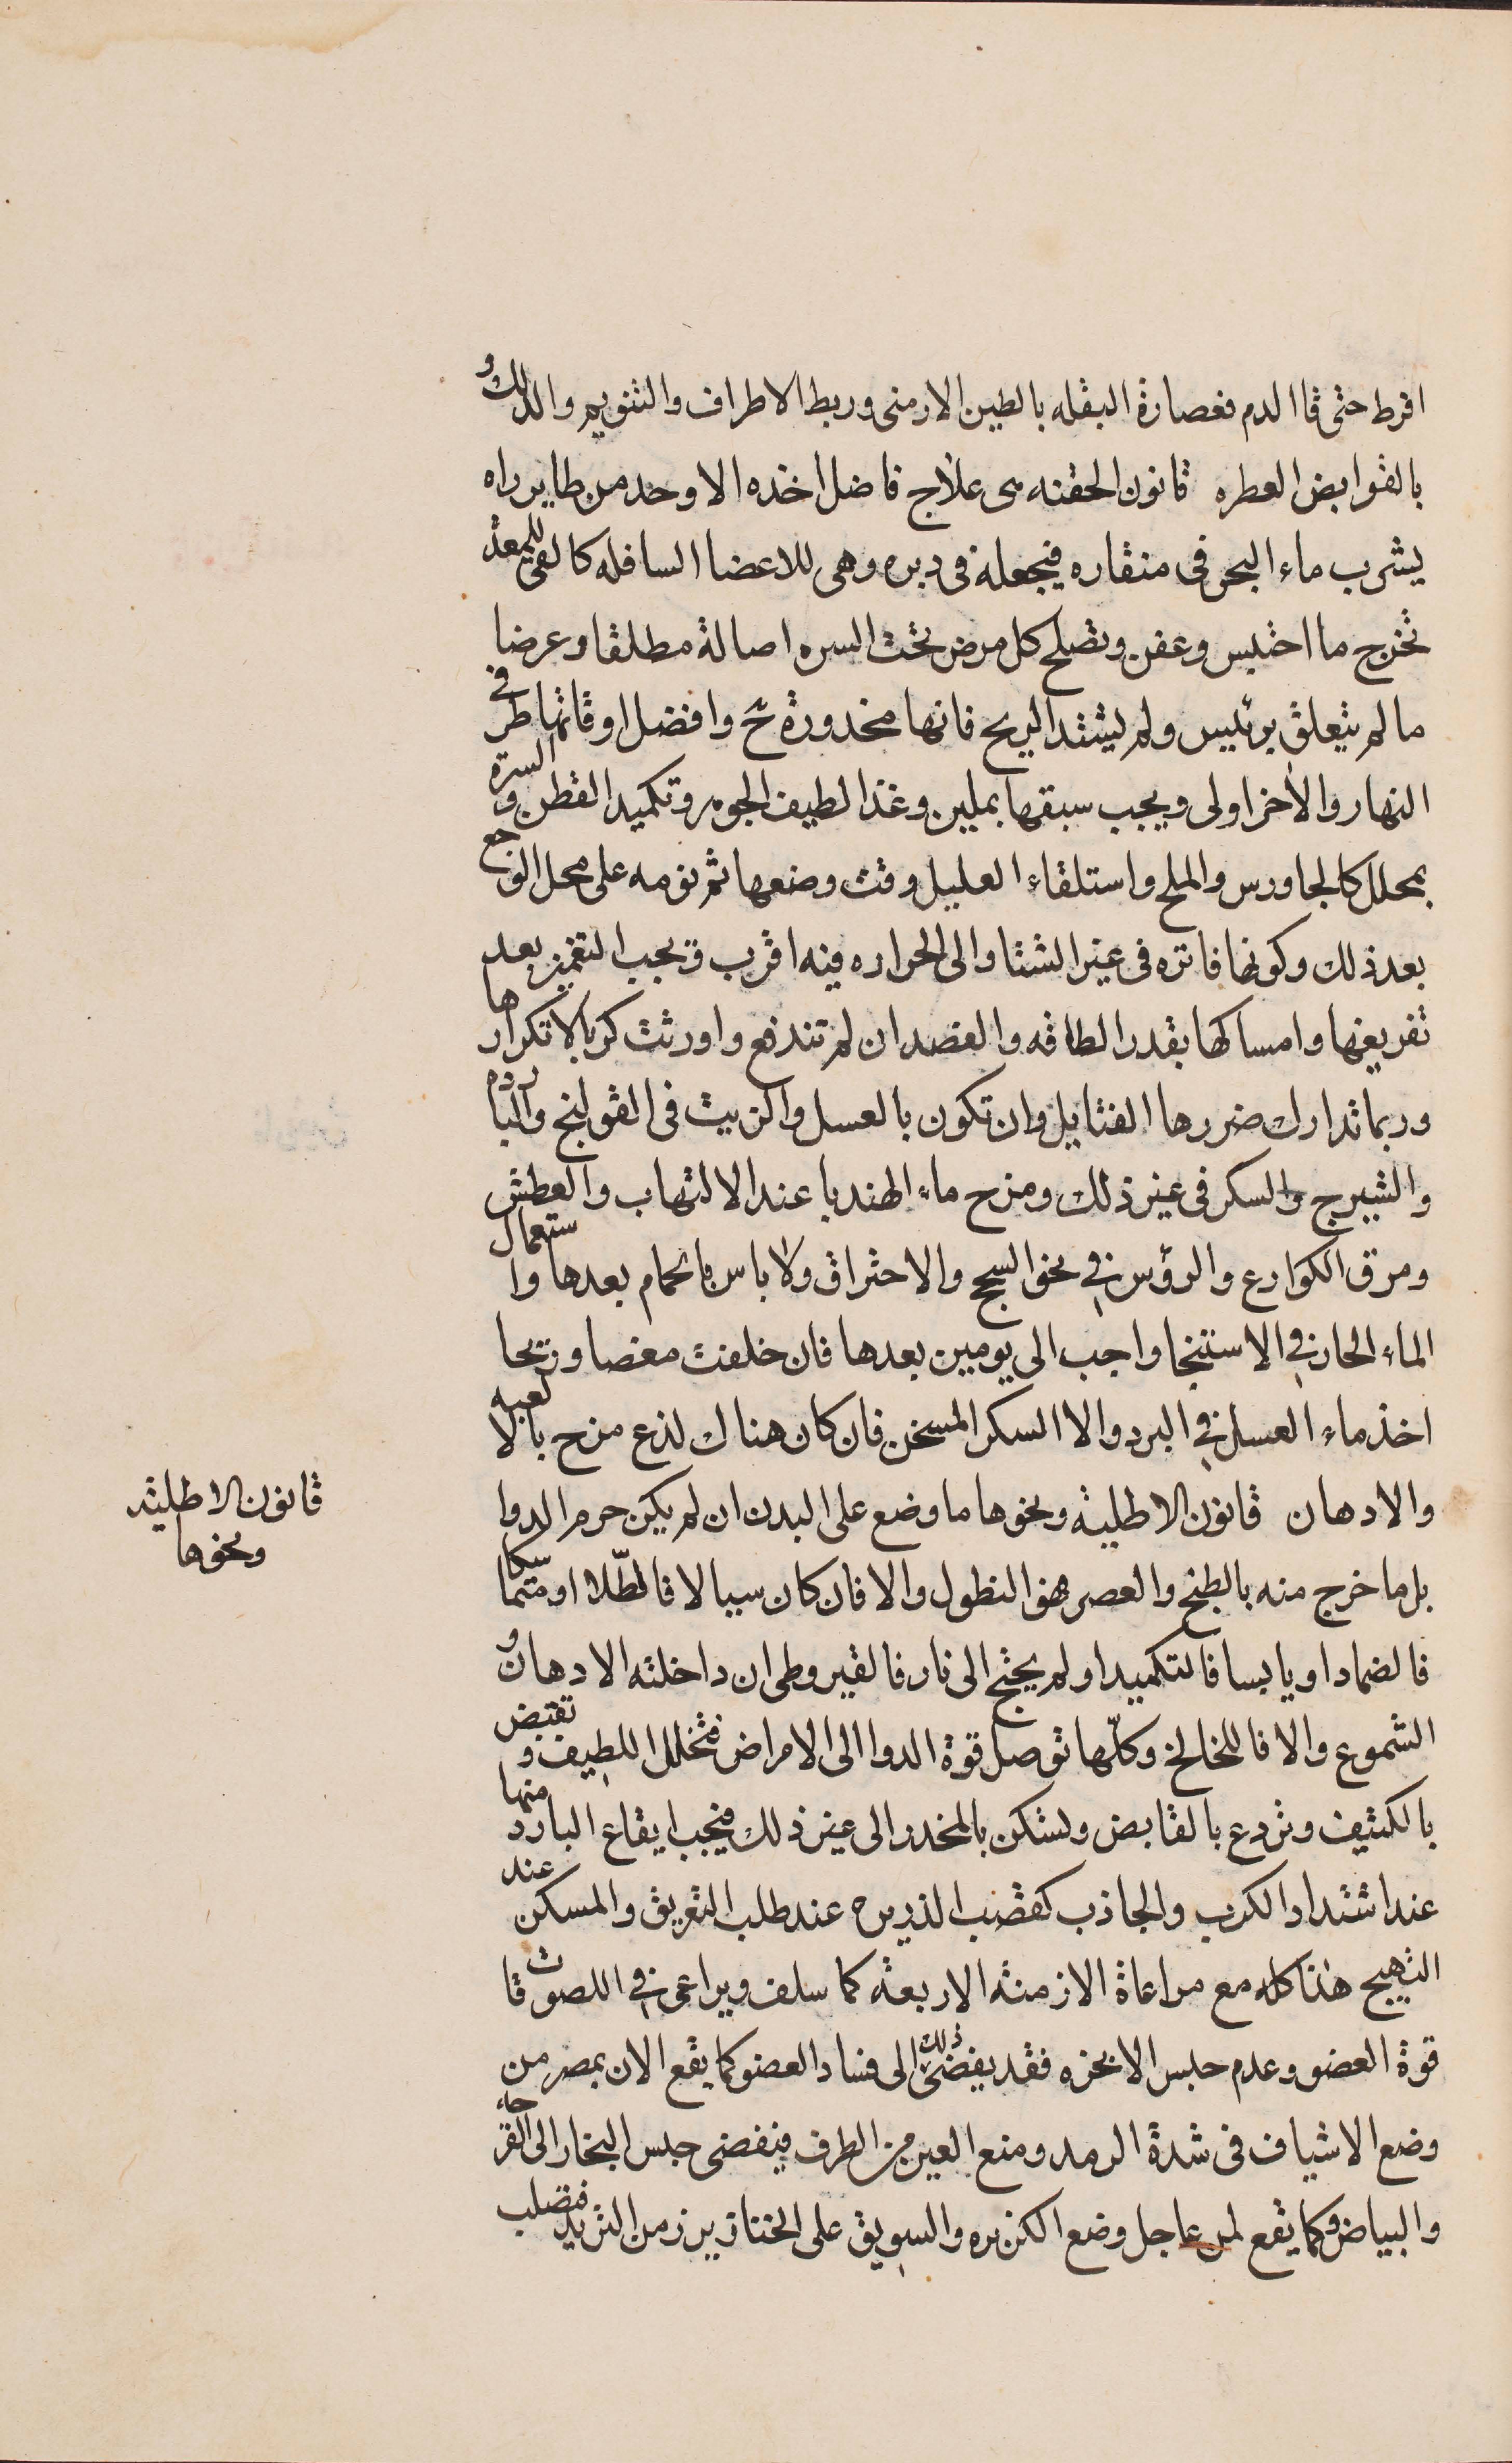 افرط حتى قا الدم فعصارة البقله بالطين الارمنى وربط الاطراف والتنويم والدلك و
بالقوابض العطره قانون الحقنه هى علاج فاضل اخذه الاوحد من طاير راه
يشرب ماء البحر فى منقاره فيجعله فى دبره وهى للاعضا السافله كالقى للمعدة
تخرج ما احتبس وعفن وتصلح كل مرض تحت السره اصالة مطلقا وعرضا
ما لم يتعلق برئيس ولم يشتد الريح فانها محذورة ح وافضل اوقاتها طرفى
النهار والاخر اولى ويجب سبقها بملين وغذا لطيف الجوهر وتكميد القطن والسرة
بمحلل كالجاورس والملح واستلقاء العليل وقت وضعها ثم نومه على محل الوجع
بعد ذلك وكونها فاتره فى غير الشتا والى الحراره فيه اقرب ويجب التغميز بعد
تفريغها وامساكها بقدر الطاقه والفصد ان لم تندفع واورثت كربا لا تكرارها
وربما تدارك ضررها الفتايل وان تكون بالعسل والزيت فى القولنج والبارده
والشيرج والسكر فى غير ذلك ومزج ماء الهندبا عند الالتهاب والعطش
ومرق الكوارع والرؤس فى نحو السحج والاحتراق ولا باس بالحمام بعدها واستعمال
الماء الحار فى الاستنجا واجب الى يومين بعدها فان خلفت مغصا وريحا
اخذ ماء العسل فى البرد والا السكر المسخن فان كان هناك لذع مزج بالالعبه
والادهان قانون الاطلية ونحوها ما وضع على البدن ان لم يكن جرم الدوا
بل ما خرج منه بالطبخ والعصر فهو النطول والا فان كان سيالا فالطلا او متماسكا
فالضماد او يابسا فالتكميد او لم يحتج الى نار فالقيروطى ان داخلته الادهان و
الشموع والا فاللخالخ وكلها توصل قوة الدوا الى الامراض فتحلل اللطيف وتقبض
بالكثيف وتردع بالقابض وتسكن بالمخدر الى غير ذلك فيجب ايقاع البارد منها
عند اشتداد الكرب والجاذب كقصب الذريره عند طلب التعريق والمسكن عند
التهييج هذا كله مع مراعاة الازمنه الاربعه كما سلف ويراعى فى اللصوقات
قوة العضو وعدم حبس الابخره فقد يفضى ذلك الى فساد العضو كما يقع الان بمصر من
وضع الاشياف فى شدة الرمد ومنع العين من الطرف فيفضى حبس البخار الى القرحاء
والبياض وكما يقع لمن عاجل وضع الكزبره والسويق على الخنازير زمن التزيد فتصلب
قانون الاطلية
ونحوها